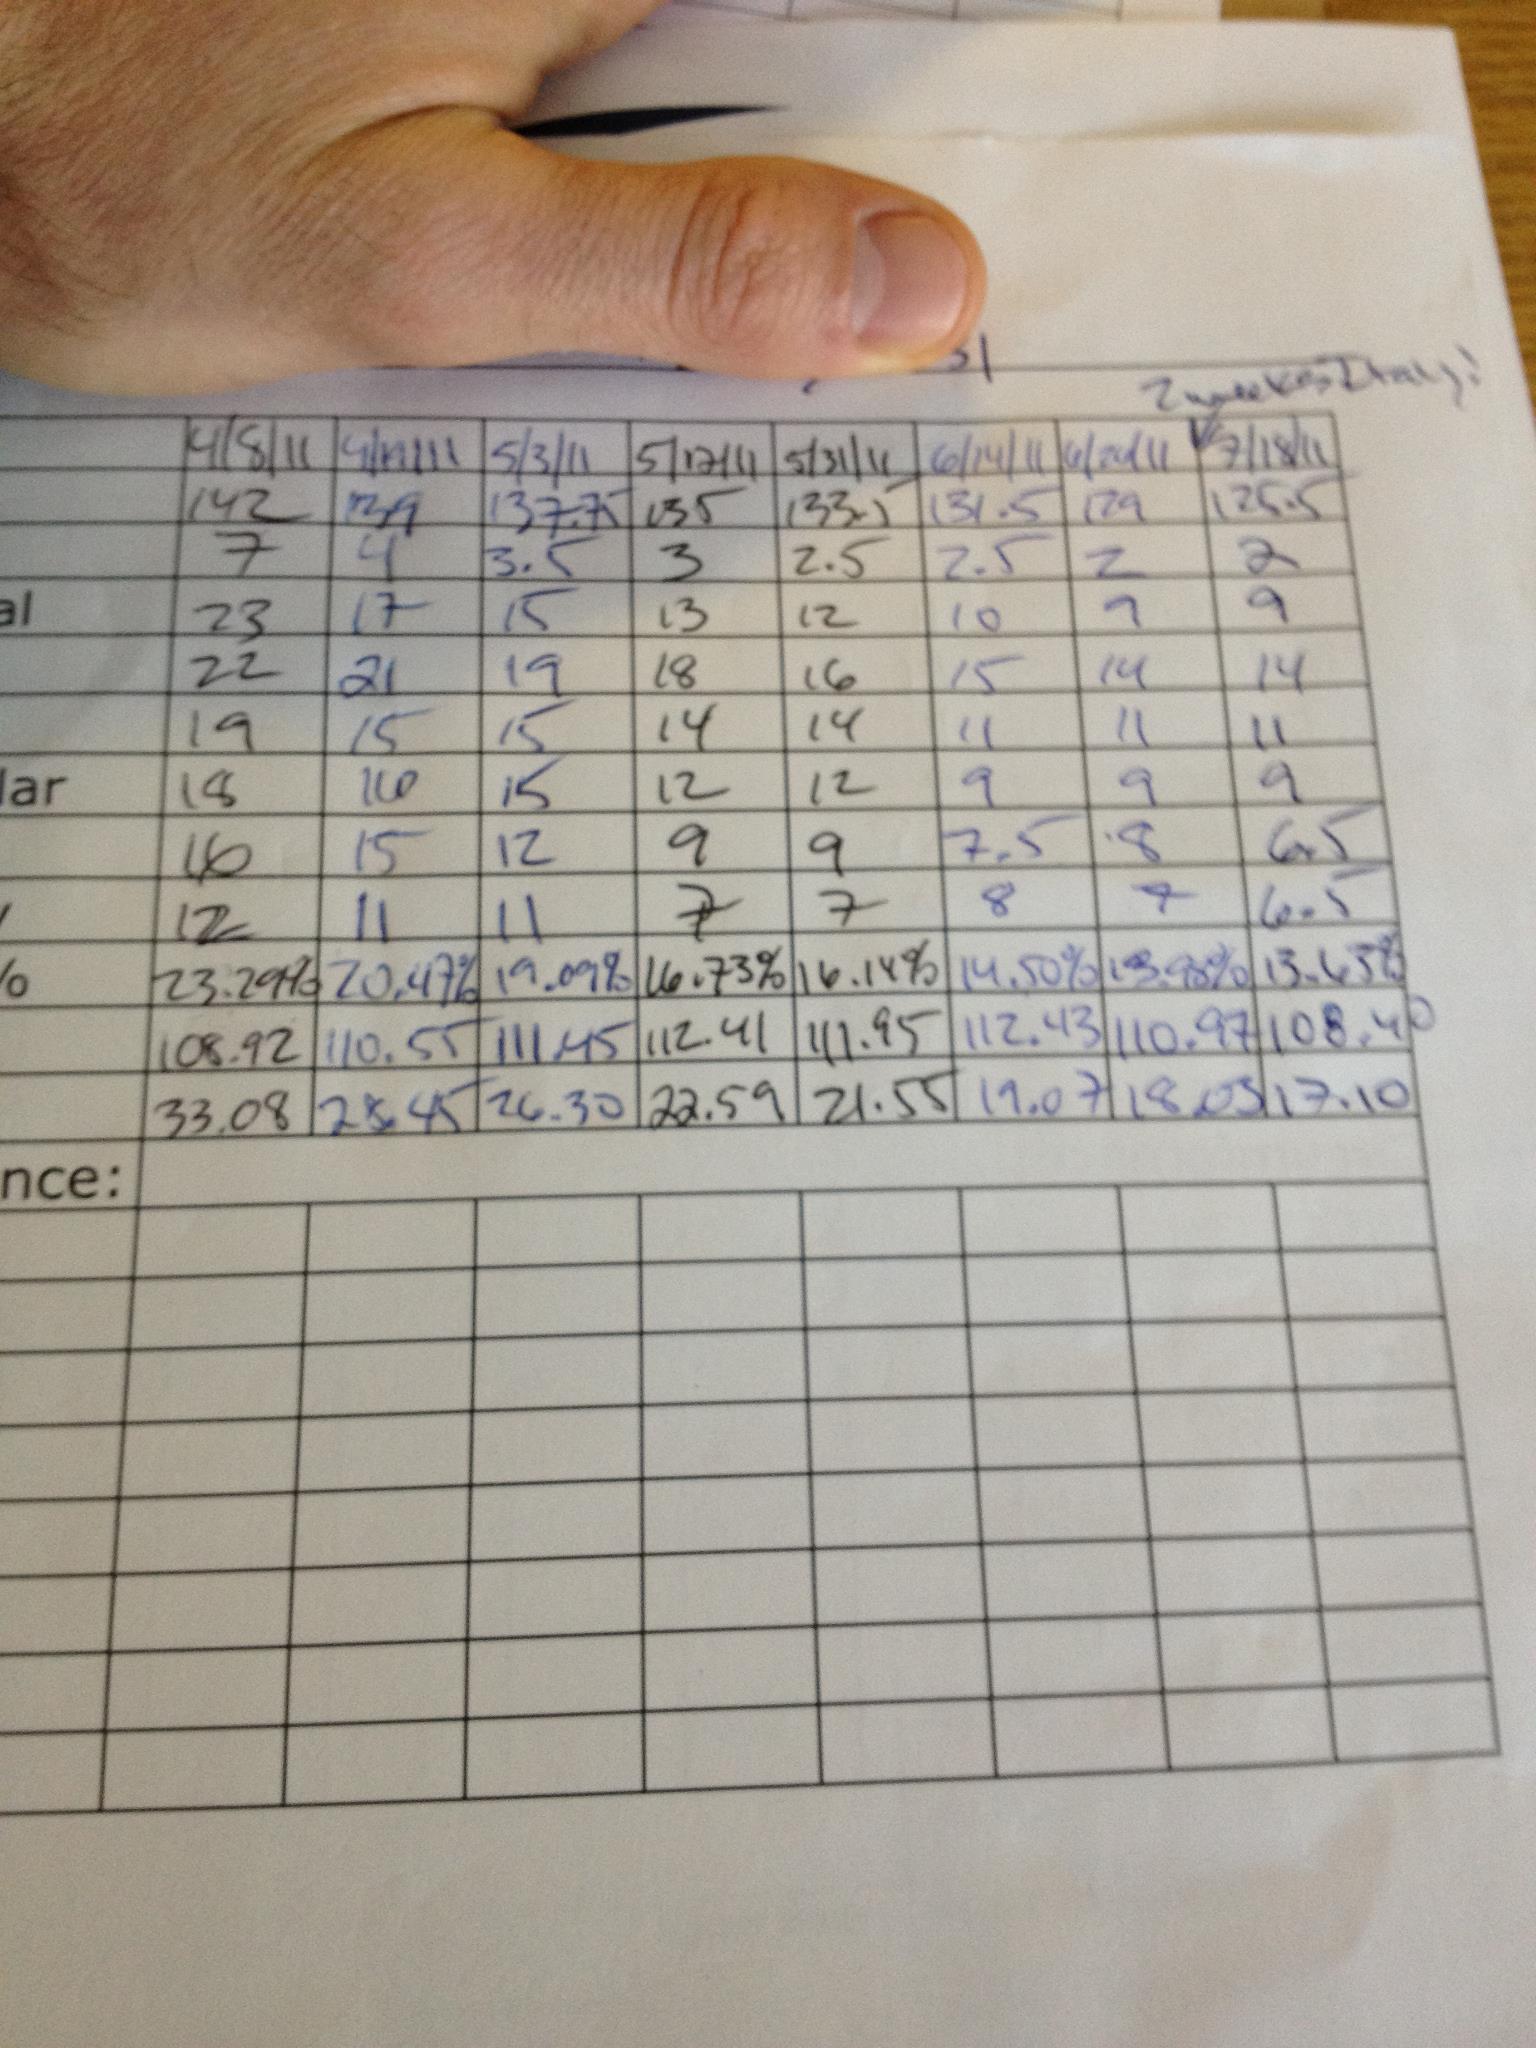 2 weeks Italy!
4/8/11 4/19/11 5/3/11 5/17/11 5/31/11 6/14/11 7/18/11
142 139 137.75 135 133.5 131.5 129 125.5
7 4 3.5 3 2.5 2.5 2 2
al 23 17 15 13 12 10 9 9
22 21 19 18 16 15 14 14
19 15 15 14 14 11 11 11
lar 18 16 15 12 12 9 9 9
16 15 12 9 9 7.5 8 6.5
12 11 11 7 7 8 7 6.5
% 23.29% 20.47% 19.09% 16.73% 16.14% 14.50% 13.98% 13.63%
108.92 110.55 111.45 112.41 111.95 112.43 110.97 108.40
33.08 28.45 26.30 22.59 21.55 19.07 18.03 17.10
nce: